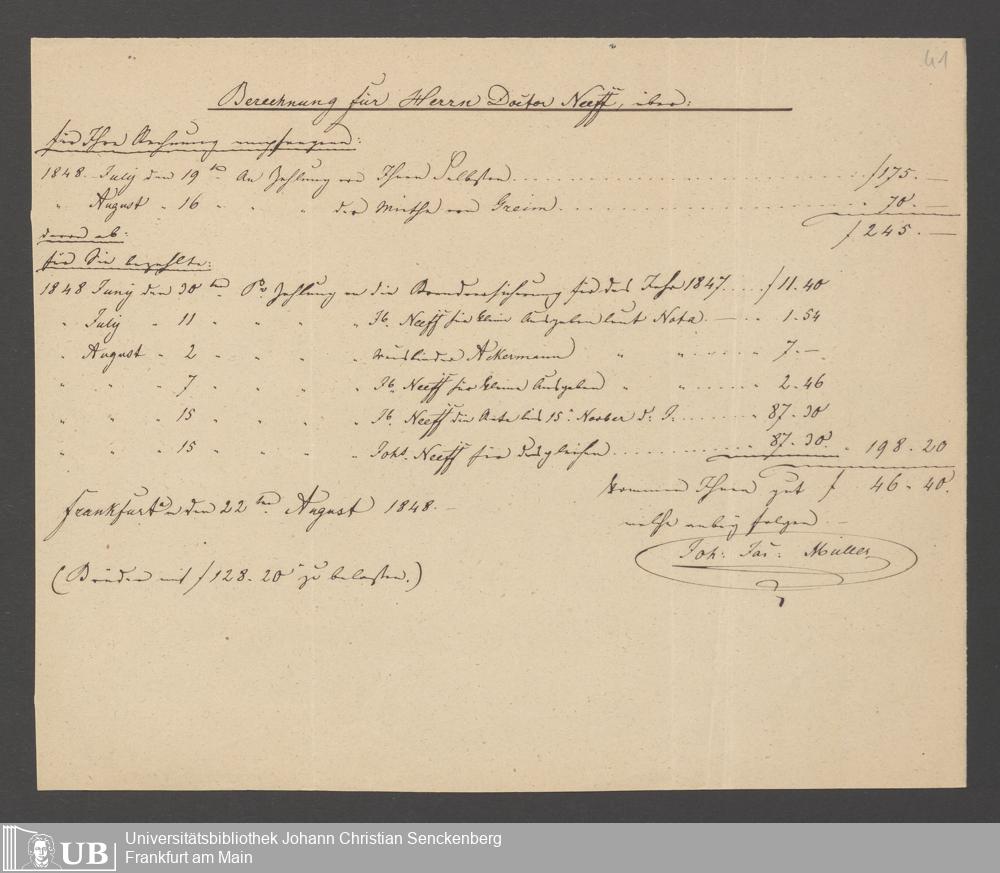 41
Berechnung für Herrn Doctor Neeff, über:
für Ihre Rechnung empfangen:
1848. July den 19ten An Zahlung von Ihnen Selbsten f 175. —
" August " 16 " " " der Miethe von Greim " 70. —
f 245. —
davon ab:
für Sie bezahlte:
1848 Juny den 30ten Pr Zahlung an die Brandversicherung für das Jahr 1847 f 11.40
" July " 11 " " " " Neeff für kleine Ausgaben laut Nota — " 1.54
" August " 2 " " " " Ackermann " " " 7. —
" " " 7 " " " " Neeff für kleine Ausgaben " " " 2.46
" " " 15 " " " " Neeff die bis 15. Novber d. J. " 87.30
" " " 15 " " " " Johs Neeff für desgleichen " 87.30. " 198.20
kommen Ihnen gut f 46.40.
Frankfurt a/m den 22ten August 1848. —
welche anbey folgen —
Joh: Jac: Müller
(Brüder mit f 128.20 zu belasten.)
UB
Universitätsbibliothek Johann Christian Senckenberg
Frankfurt am Main